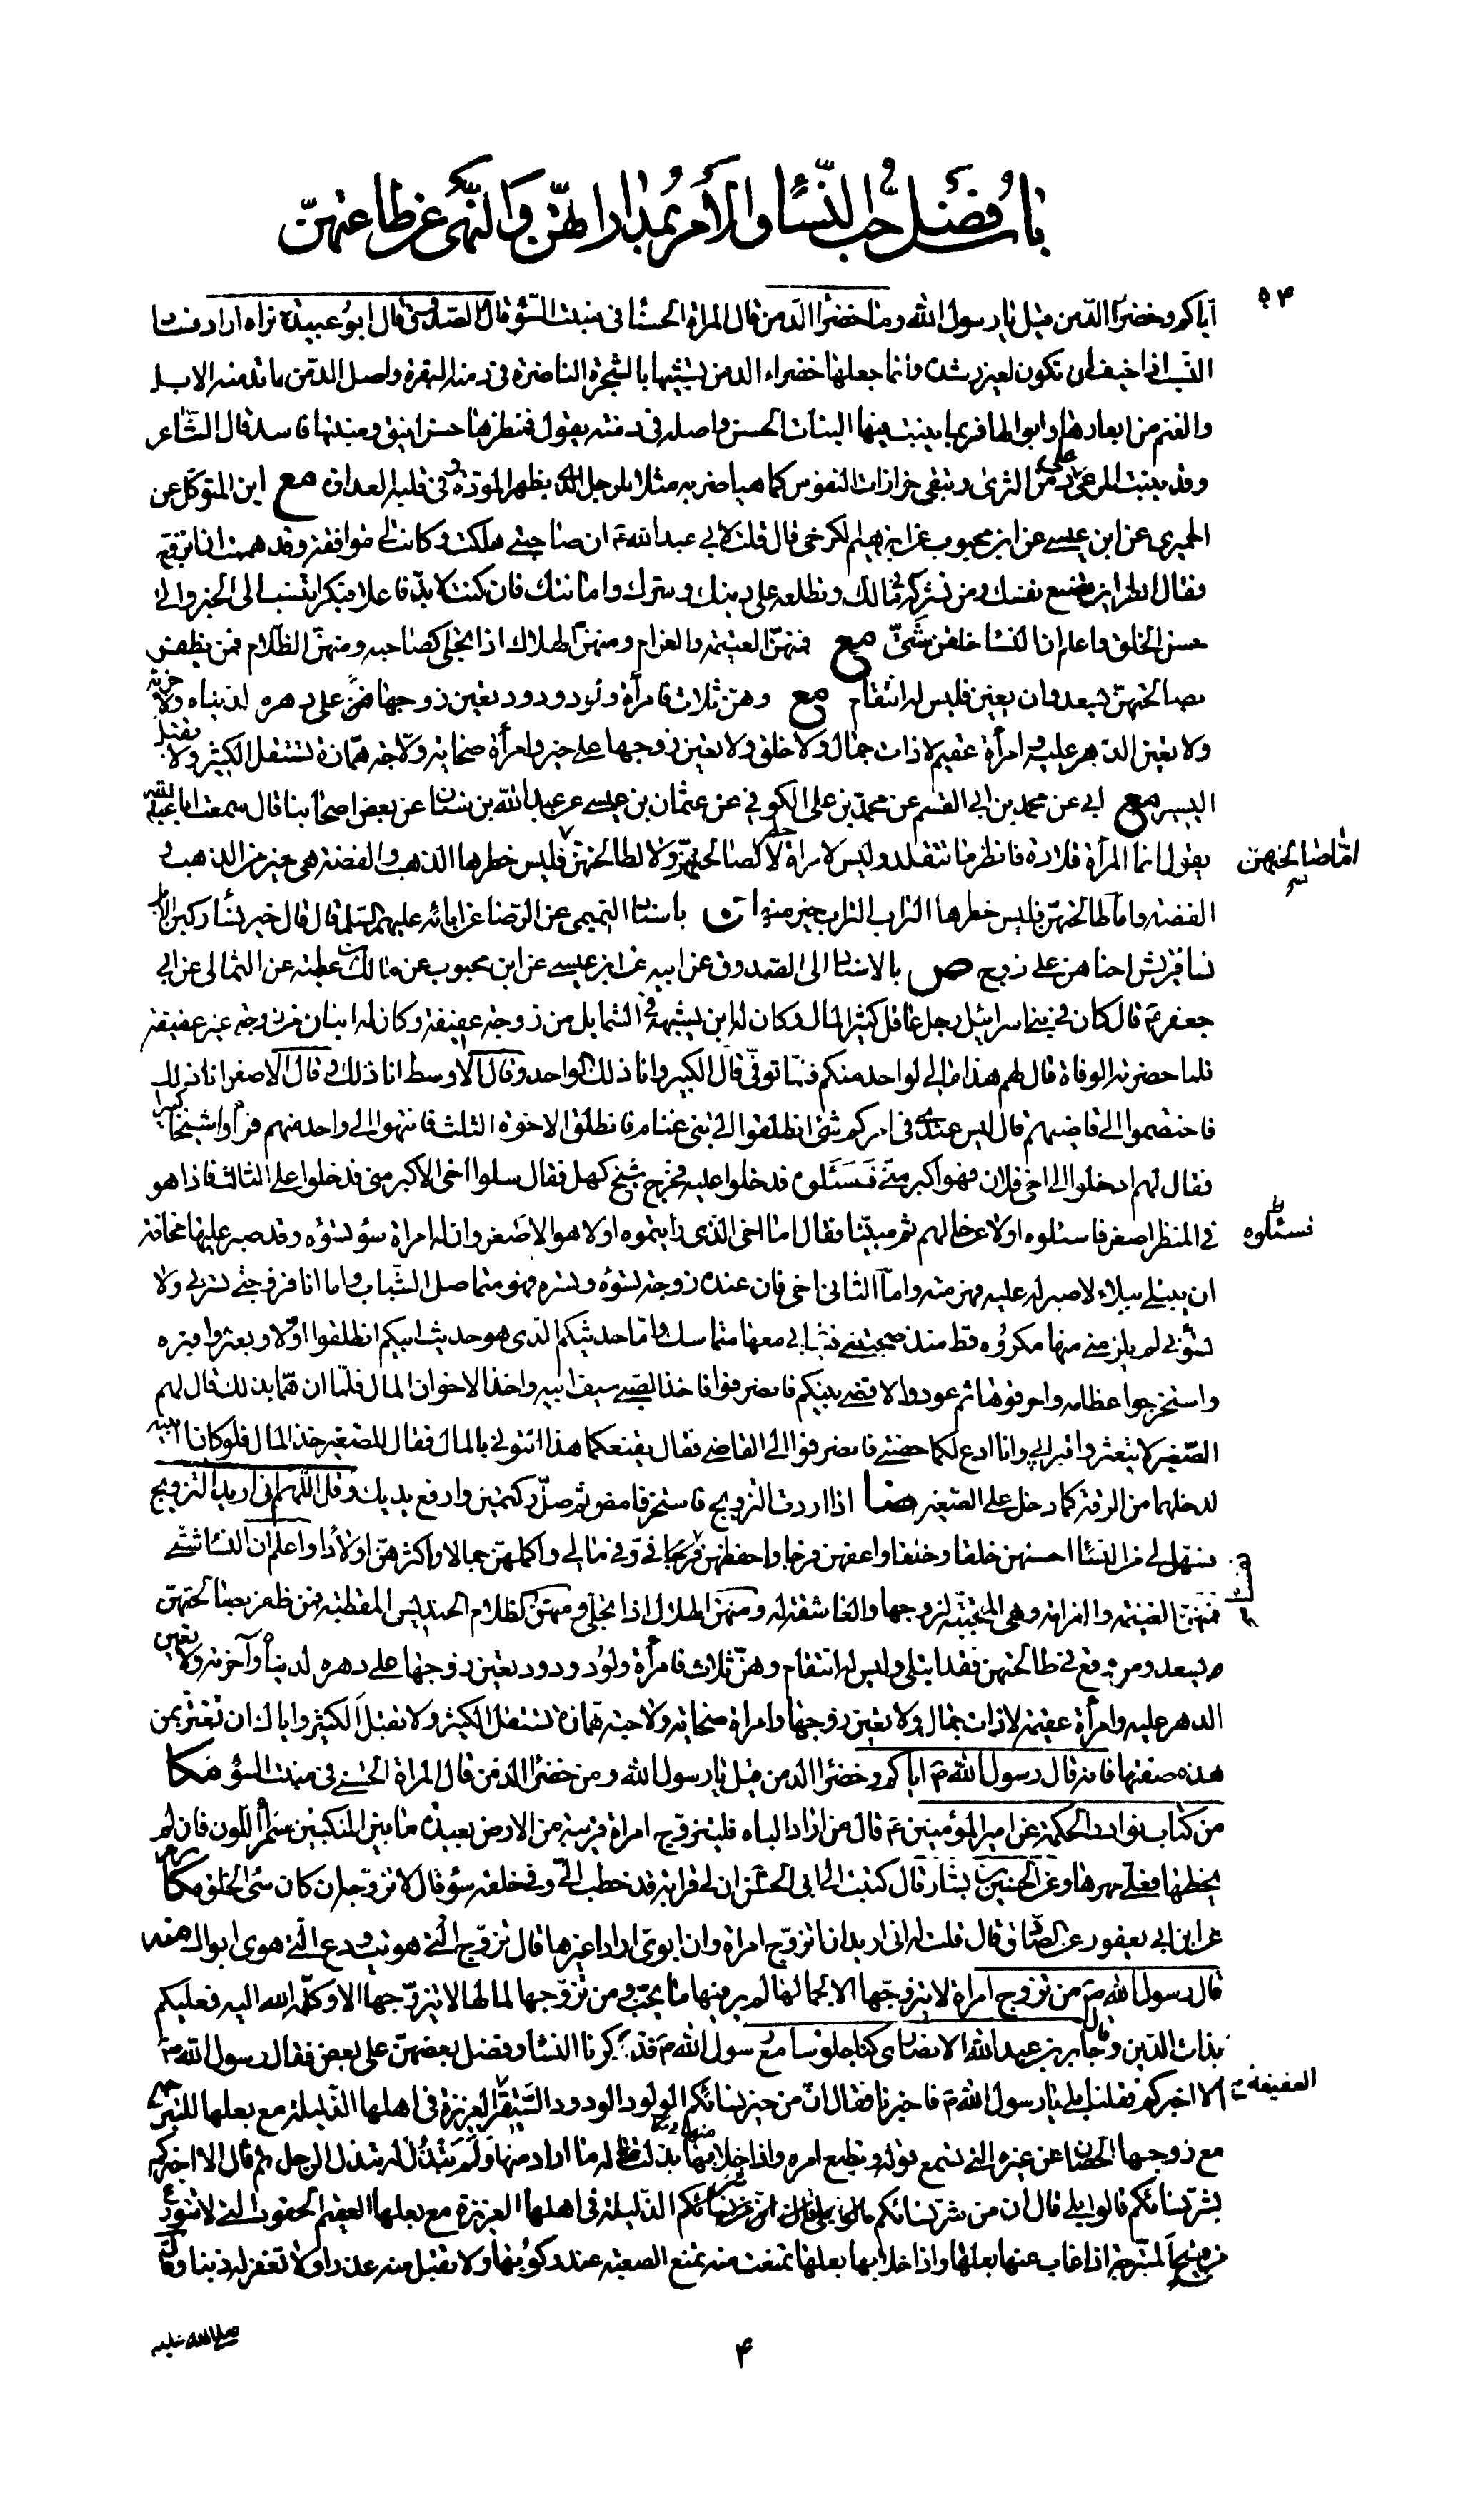 باب فضل حب النساء والأمر بمداراتهن والنهي عن طاعتهن
۵۴
اياكم وخضراء الدمن قيل يا رسول الله وما خضراء الدمن قال المراة الحسناء في منبت السوء قال الصدوق قال ابو عبيدة نراه اراد فساد
النسب اذا خيف ان تكون لغير رشدة وانما جعلها خضراء الدمن تشبيها بالشجرة الناضرة في دمنة البقرة واصل الدمن ما تدمنه الابل
والغنم من ابعارها وابوالها فربما ينبت فيها النبات الحسن واصله في دمنة يقول فمنظرها حسن انيق ومنبتها فاسد قال الشاعر
وقد ينبت المرعى على دمن الثرى وتبقى حزازات النفوس كما هيا ضربه مثلا للرجل الذي يظهر المودة وفي قلبه العداوة مع ابن المتوكل عن
الحميري عن ابن عيسى عن ابن محبوب عن ابرهيم الكرخي قال قلت لابي عبد الله ع ان صاحبتي هلكت وكانت لي موافقة وقد هممت ان اتزوج
فقال انظر اين تضع نفسك ومن تشركه في مالك وتطلعه على دينك وسرك وامانتك فان كنت لا بد فاعلا فبكرا تنسب الى الخير والى
حسن الخلق واعلم ان النساء خلقن شتى مع فمنهن الغنيمة والغرام ومنهن الهلال اذا تجلى لصاحبه ومنهن الظلام فمن يظفر
بصالحتهن يسعد ومن يغبن فليس له انتقام مع وهن ثلاث فامرأة ولود ودود تعين زوجها على دهره لدنياه ولآخرته
ولا تعين الدهر عليه وامرأة عقيم لا ذات جمال ولا خلق ولا تعين زوجها على خير وامرأة صخابة ولاجة همازة تستقل الكثير ولا تقبل
اليسير مع ابي عن محمد بن ابي القسم عن محمد بن علي الكوفي عن عثمان بن عيسى عن عبد الله بن سنان عن بعض اصحابنا قال سمعت ابا عبد الله
يقول انما المرأة قلادة فانظر ما تتقلد وليس لامراة خطر لا لصالحتهن ولا لطالحتهن فليس خطرها الذهب والفضة هي خير من الذهب و
اما صالحتهن
الفضة واما طالحتهن فليس خطرها التراب التراب خير منها ن باسناد التميمي عن الرضا عن ابائه عليهم السلم قال قال خير نساء ركبن الابل
نساء قريش احناهن على زوج ص بالاسناد الى الصدوق عن ابيه عن ابن عيسى عن ابن محبوب عن مالك بن عطية عن الثمالي عن ابي
جعفر ع قال كان في بني اسرائيل رجل عاقل كثير المال وكان له ابن يشبهه في الشمايل من زوجة عفيفة وكان له ابنان من زوجة غير عفيفة
فلما حضرته الوفاة قال لهم هذا مالي لواحد منكم فلما توفي قال الكبير انا ذلك الواحد وقال الاوسط انا ذلك وقال الاصغر انا ذلك
فاختصموا الى قاضيهم قال ليس عندي في امركم شئ انطلقوا الى بني غنام فانطلق الاخوة الثلث فانتهوا الى واحد منهم فرأوا شيخا كبيرا
فقال لهم ادخلوا الى اخي فلان فهو اكبر مني فسئلوه فدخلوا عليه فخرج شيخ كهل فقال سلوا اخي الاكبر مني فدخلوا على الثالث فاذا هو
في المنظر اصغر فاسئلوه اولا عن حالهم ثم مبينا فقال اما اخي الذي رايتموه اولا هو الاصغر وان له امراة سوء تسوءه وقد صبر عليها مخافة
نسئلوه
ان يبتلى ببلاء لا صبر له عليه فهرمته واما الثاني اخي فان عنده زوجة تسوءه وتسره فهو متماسك الشباب واما انا فزوجتي تسرني ولا
تسوءني لم يلزمني منها مكروه قط منذ صحبتني فشبابي معها متماسك واما حديثكم الذي هو حديث ابيكم انطلقوا اولا وبعثروا قبره
واستخرجوا عظامه واحرقوها ثم عودوا لاقضي بينكم فانصرفوا فاخذ الصبي سيف ابيه واخذ الاخوان المال فلما ان هما بذلك قال لهم
الصغير لا تبعثروا قبر ابي وانا ادع لكما حصتي فانصرفوا الى القاضي فقال يقنعكما هذا ائتوني بالمال فقال للصغير خذ المال فلو كانا ابنيه
لدخلهما من الرقة كما دخل على الصغير ضا اذا اردت التزويج فاستخر فامض ثم صل ركعتين وارفع يديك وقل اللهم اني اريد التزويج
فسهل لي من النساء احسنهن خلقا وخلقا واعفهن فرجا واحفظهن نفسا في وفي مالي واكملهن جمالا واكثرهن اولادا واعلم ان النساء شتى
فمنهن الغنيمة والغرامة وهي المتحببة لزوجها والعاشقة له ومنهن الهلال اذا تجلى ومنهن الظلام الحنديس المقطبة فمن ظفر بصالحتهن
يسعد ومن وقع في طالحتهن فقد ابتلي وليس له انتقام وهن ثلاث فامرأة ولود ودود تعين زوجها على دهره لدنياه وآخرته ولا تعين
الدهر عليه وامرأة عقيمة لا ذات جمال ولا تعين زوجها وامراة صخابة ولاجة همازة تستقل الكثير ولا تقبل الكثير واياك ان تغتر بمن
هذه صفتها فانه قال رسول الله ص اياكم وخضراء الدمن قيل يا رسول الله ومن خضراء الدمن قال المراة الحسنى في منبت السوء مكا
من كتاب نوادر الحكمة عن امير المؤمنين ع قال من اراد الباه فليتزوج امراة قريبة من الارض بعيدة ما بين المنكبين سمراء اللون فان لم
يحظ بها فعلي مهرها وعن الحسين بن بشار قال كتبت الى ابي الحسن ان لي قرابة قد خطب الي وفي خلقه سوء قال لا تزوجه ان كان سئ الخلق مكا
عن ابن ابي يعفور عن الصادق قال قلت له اني اريد ان اتزوج امراة وان ابوي ارادا غيرها قال تزوج التي هويت ودع التي هوى ابواك منه
قال رسول الله ص من تزوج امراة لا يتزوجها الا لجمالها لم ير فيها ما يحب ومن تزوجها لمالها لا يتزوجها الا وكله الله اليه فعليكم
بذات الدين وقال جابر بن عبد الله الانصاري كنا جلوسا مع رسول الله ص فذكرنا النساء وفضل بعضهن على بعض فقال رسول الله ص
الا اخبركم فقلنا بلى يا رسول الله ص فاخبرنا فقال ان من خير نسائكم الولود الودود الستيرة العزيزة في اهلها الذليلة مع بعلها المتبرجة
العفيفة
مع زوجها الحصان عن غيره التي تسمع قوله وتطيع امره واذا خلا بها بذلت له ما اراد منها ولم تبذل له تبذل الرجل ثم قال الا اخبركم
بشر نسائكم قالوا بلى قال ان من شر نسائكم الذليلة في اهلها العزيزة مع بعلها العقيم الحقود التي لا تتورع
من قبيح المتبرجة اذا غاب عنها بعلها واذا خلا بها بعلها تمنعت منه تمنع الصعبة عند ركوبها ولا تقبل منه عذرا ولا تغفر له ذنبا وقال
صلى الله عليه
۴